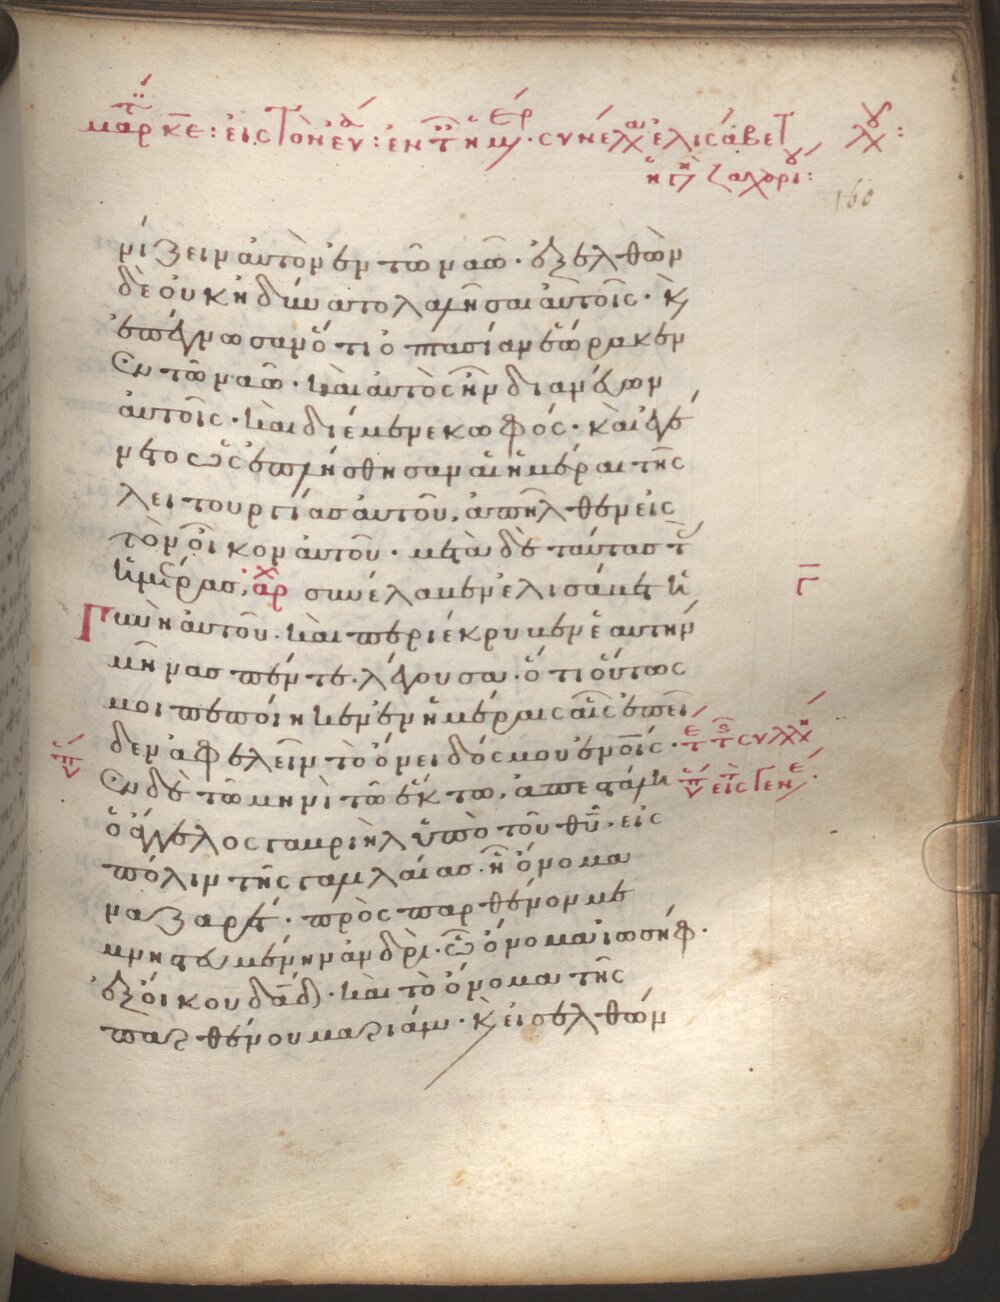 νίζειν αὐτὸν ἐν τῶ ναῶ· ἐξελθὼν
δὲ οὐκ ἠδύνατο λαλῆσαι αὐτοῖς· κ
ἐπέγνωσαν ὅτι ὀπτασίαν ἑώρακεν
Ἐν τῶ ναῶ· καὶ αὐτὸς ἦν διανεύων
αὐτοῖς· καὶ διέμενε κωφός· καὶ ἐγέ
νετο ὡς ἐπλήσθησαν αἱ ἡμέραι τῆς
λειτουργίας αὐτοῦ, ἀπῆλθεν εἰς
τὸν οἶκον αὐτοῦ· μετὰ δὲ ταύτας τ
ἡμέρας, ἀρχ συνέλαβεν ἐλισάβετ ἡ
Γυνὴ αὐτοῦ· καὶ περιέκρυβεν ἑαυτὴν
μῆνας πέντε· λέγουσα· ὅτι οὕτως
μοι πεποίηκεν ἐν ἡμέραις αἷς ἐπεῖ
δεν ἀφελεῖν τὸ ὄνειδός μου ἐν οῖς·
Ἐν δὲ τῶ μηνὶ τῶ ἕκτω, ἀπεστάλη
ὁ ἄγγελος γαβριὴλ ὑπὸ τοῦ θῦ· εἰς
πόλιν τῆς γαλιλαίας· ἧ ὄνομα
ναζαρέτ· πρὸς παρθένον με
μνηστευμένην ἀνδρὶ· ὧ ὄνομα ἰωσήφ·
ἐξ οἴκου δαδ· καὶ τὸ ὄνομα τῆς
παρθένου μαριάμ· κ εἰσελθὼν